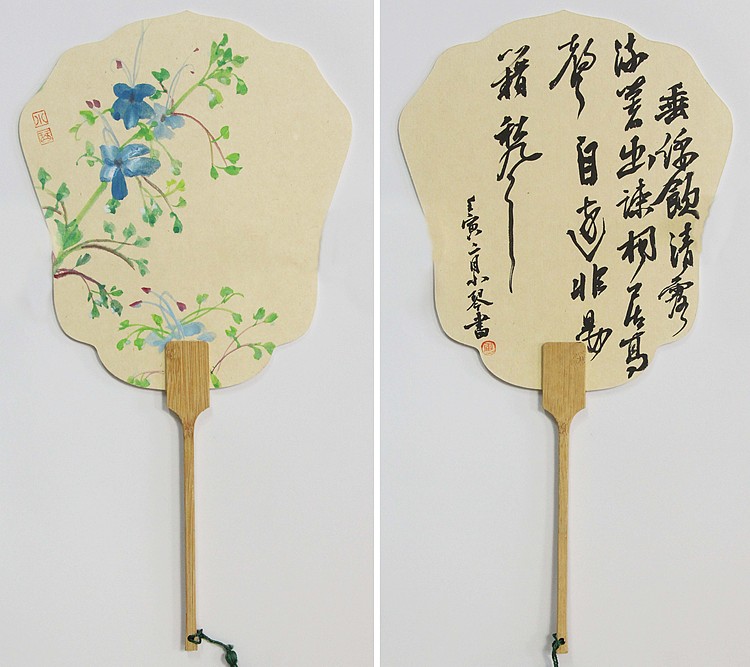 垂緌飲清露
流響出疎桐居高
聲自遠非是
藉秋風
壬寅二月小琴書